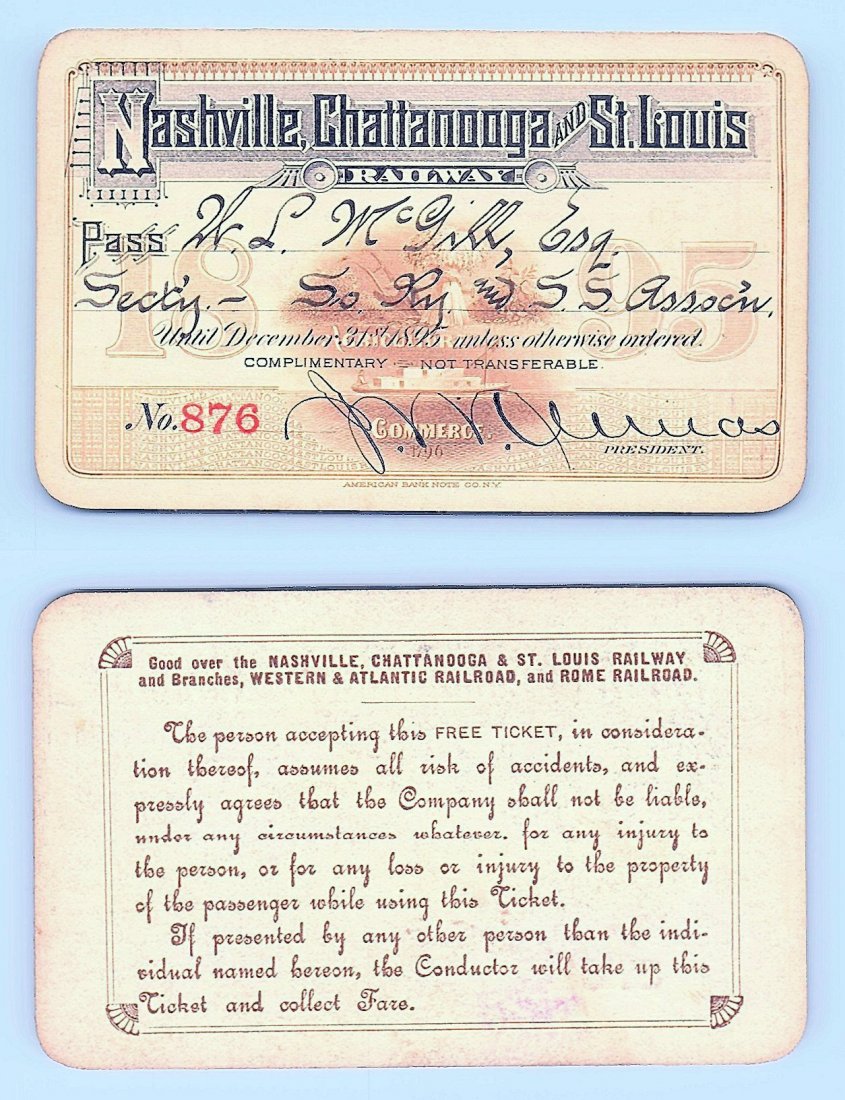 Nashville, Chattanooga AND St. Louis
RAILWAY
Pass W. L. McGill, Esq.
Sect'y. – So. Ry. and S. S. Assoc'n.
18 95
Until December 31st 1895 unless otherwise ordered.
AGRICULTURE
COMPLIMENTARY — NOT TRANSFERABLE.
No. 876
COMMERCE.
PRESIDENT.
AMERICAN BANK NOTE CO. N.Y.
Good over the NASHVILLE, CHATTANOOGA & ST. LOUIS RAILWAY
and Branches, WESTERN & ATLANTIC RAILROAD, and ROME RAILROAD.
The person accepting this FREE TICKET, in considera-
tion thereof, assumes all risk of accidents, and ex-
pressly agrees that the Company shall not be liable,
under any circumstances whatever, for any injury to
the person, or for any loss or injury to the property
of the passenger while using this Ticket.
If presented by any other person than the indi-
vidual named hereon, the Conductor will take up this
Ticket and collect Fare.